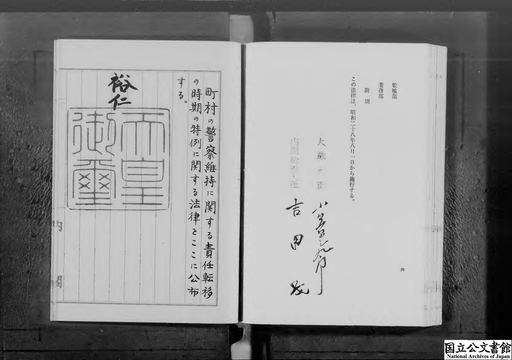 乾繭部
業務部
附則
この法律は、昭和二十八年八月一日から施行する。
大蔵大臣
内閣総理大臣
吉田茂
四
町村の警察維持に関する責任転移
の時期の特例に関する法律をここに公布
する。
裕仁
天皇
御璽
内閣
国立公文書館
National Archives of Japan